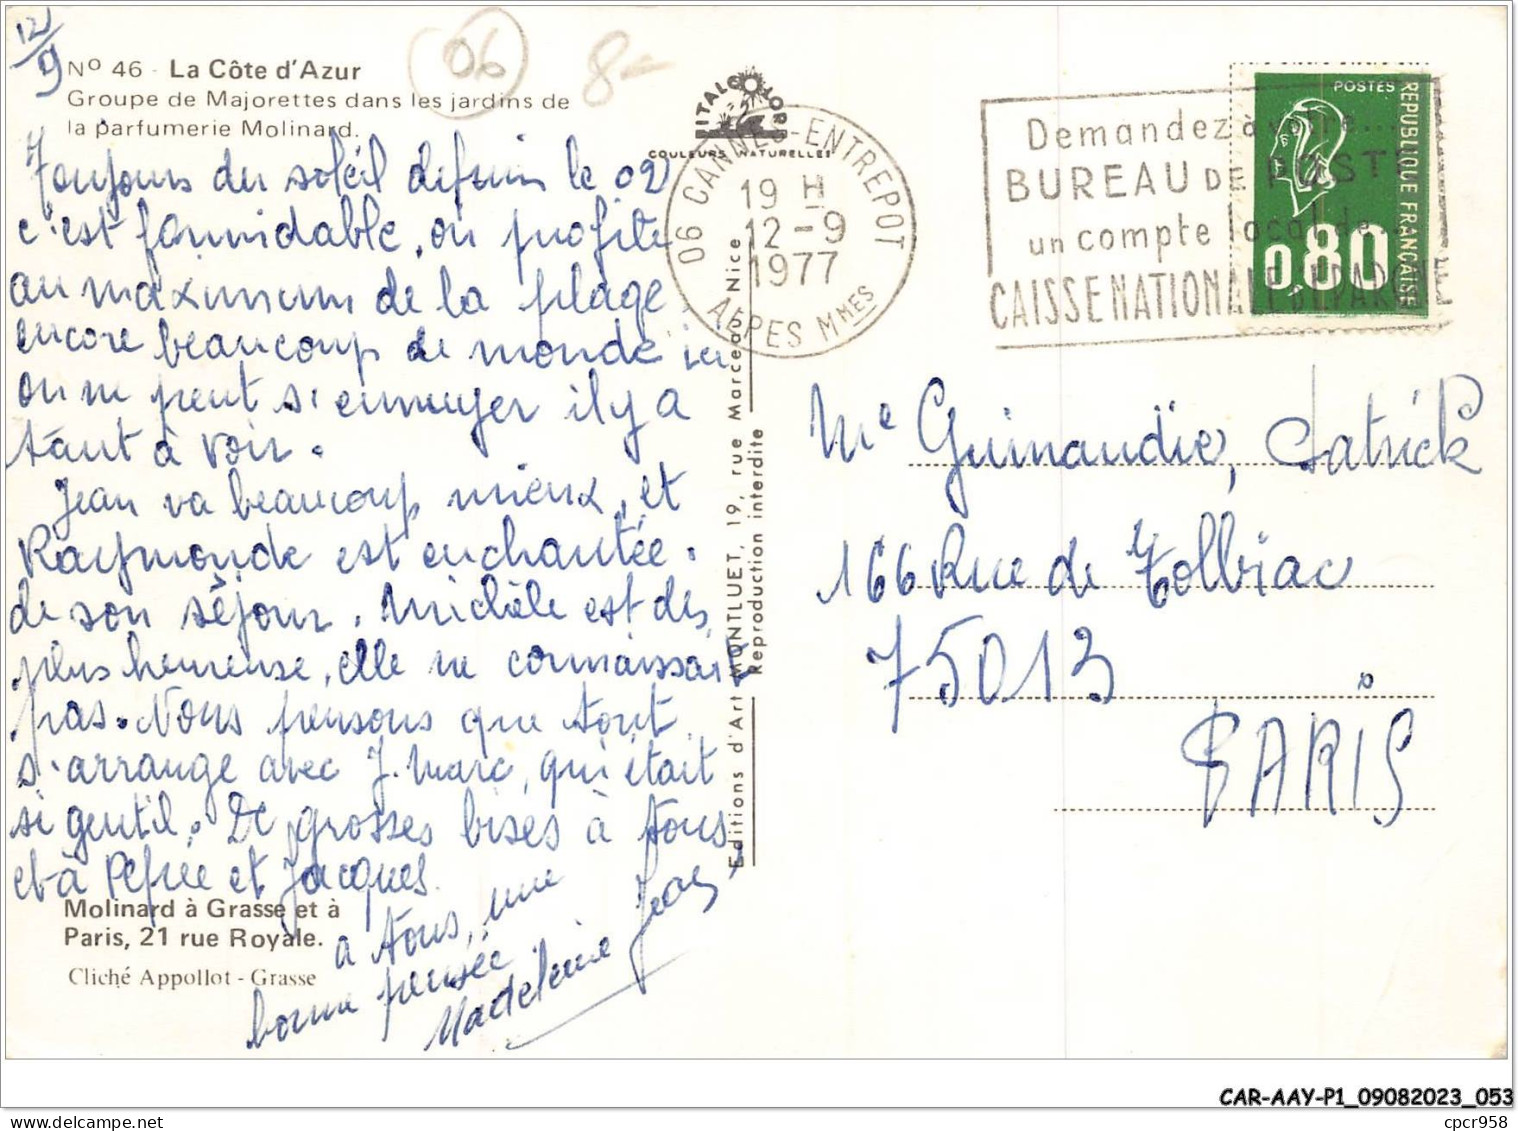 12/9
06
8-
Nº 46 - La Côte d'Azur
Groupe de Majorettes dans les jardins de
la parfumerie Molinard.
Toujours du soleil depuis le 02
c'est formidable, on profite
au maximum de la plage.
encore beaucoup de monde ici
on ne peut s'ennuyer il y a
tant à voir.
Jean va beaucoup mieux, et
Raymonde est enchantée.
de son séjour. Michèle est des
plus heureuse, elle ne connaissait
pas. Nous pensons que tout
s'arrange avec J. Marc, qui était
si gentil. De grosses bises à tous
et à et Jacques.
à tous, une
bonne pensée
Madeleine Jean
Molinard à Grasse et à
Paris, 21 rue Royale.
Cliché Appollot - Grasse
ITALCOLOR
COULEURS NATURELLES
Editions d'Art MONTLUET, 19, rue Marceau, Nice
Reproduction interdite
06 CANNES-ENTREPOT
19 H
12-9
1977
ALPES MMES
Demandez à votre...
BUREAU DE POSTE
un compte local de
CAISSE NATIONALE D'EPARGNE
POSTES
REPUBLIQUE FRANÇAISE
0,80
Me Guimaudie, Patrick
166 Rue de Tolbiac
75013
PARIS
CAR-AAY-P1_09082023_053
delcampe.net
cpcr958